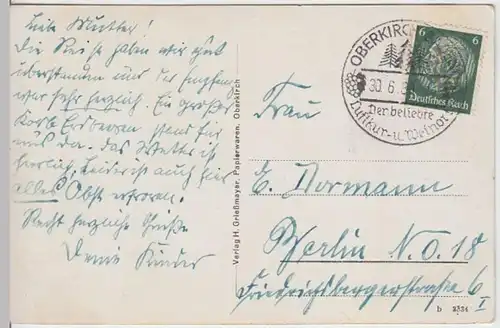 Liebe Mutter!
Die Reise haben wir gut
überstanden und der Empfang
war sehr herzlich. Ein großer
Korb Erdbeeren stand für
uns da. Das Wetter ist
herrlich, leider ist auch hier
alles Obst erfroren.
Recht herzliche Grüße
Deine Kinder
Verlag H. Grießmayer, Papierwaren, Oberkirch
OBERKIRCH
30.6.
Der beliebte
Luftkur- u. Weinort
6 6
Deutsches Reich
Frau
E. Dormann
Berlin N.O.18
Friedrichsbergerstraße 6 I
b 2534